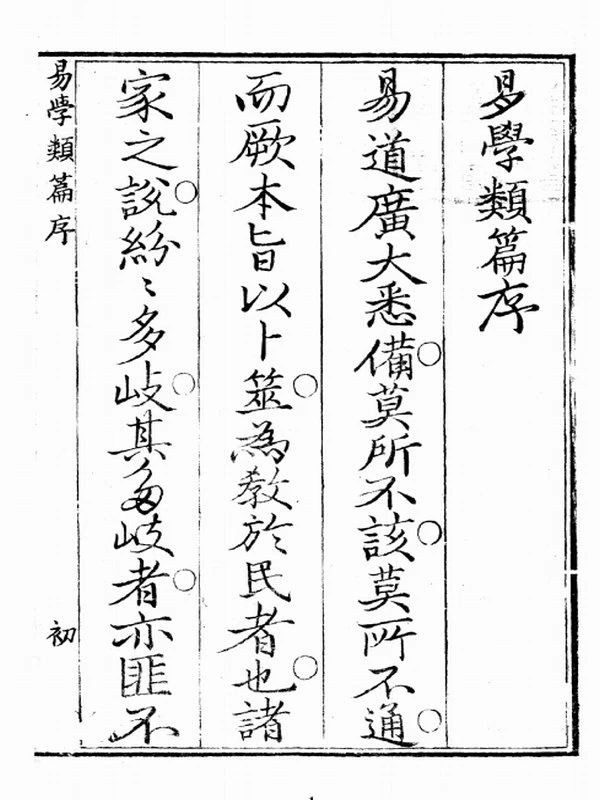 易學類篇序
易道廣大悉備○莫所不該○莫所不通○
而厥本旨以卜筮○為教於民者也○諸
家之說○紛〻多岐○其多岐者○亦匪不
易學類篇序 初